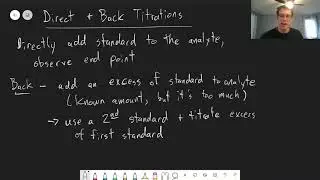 Direct + Back Titrations
Directly add standard to the analyte,
observe end point
Back - add an excess of standard to analyte
(known amount, but it's too much)
→ use a 2nd standard + titrate excess
of first standard